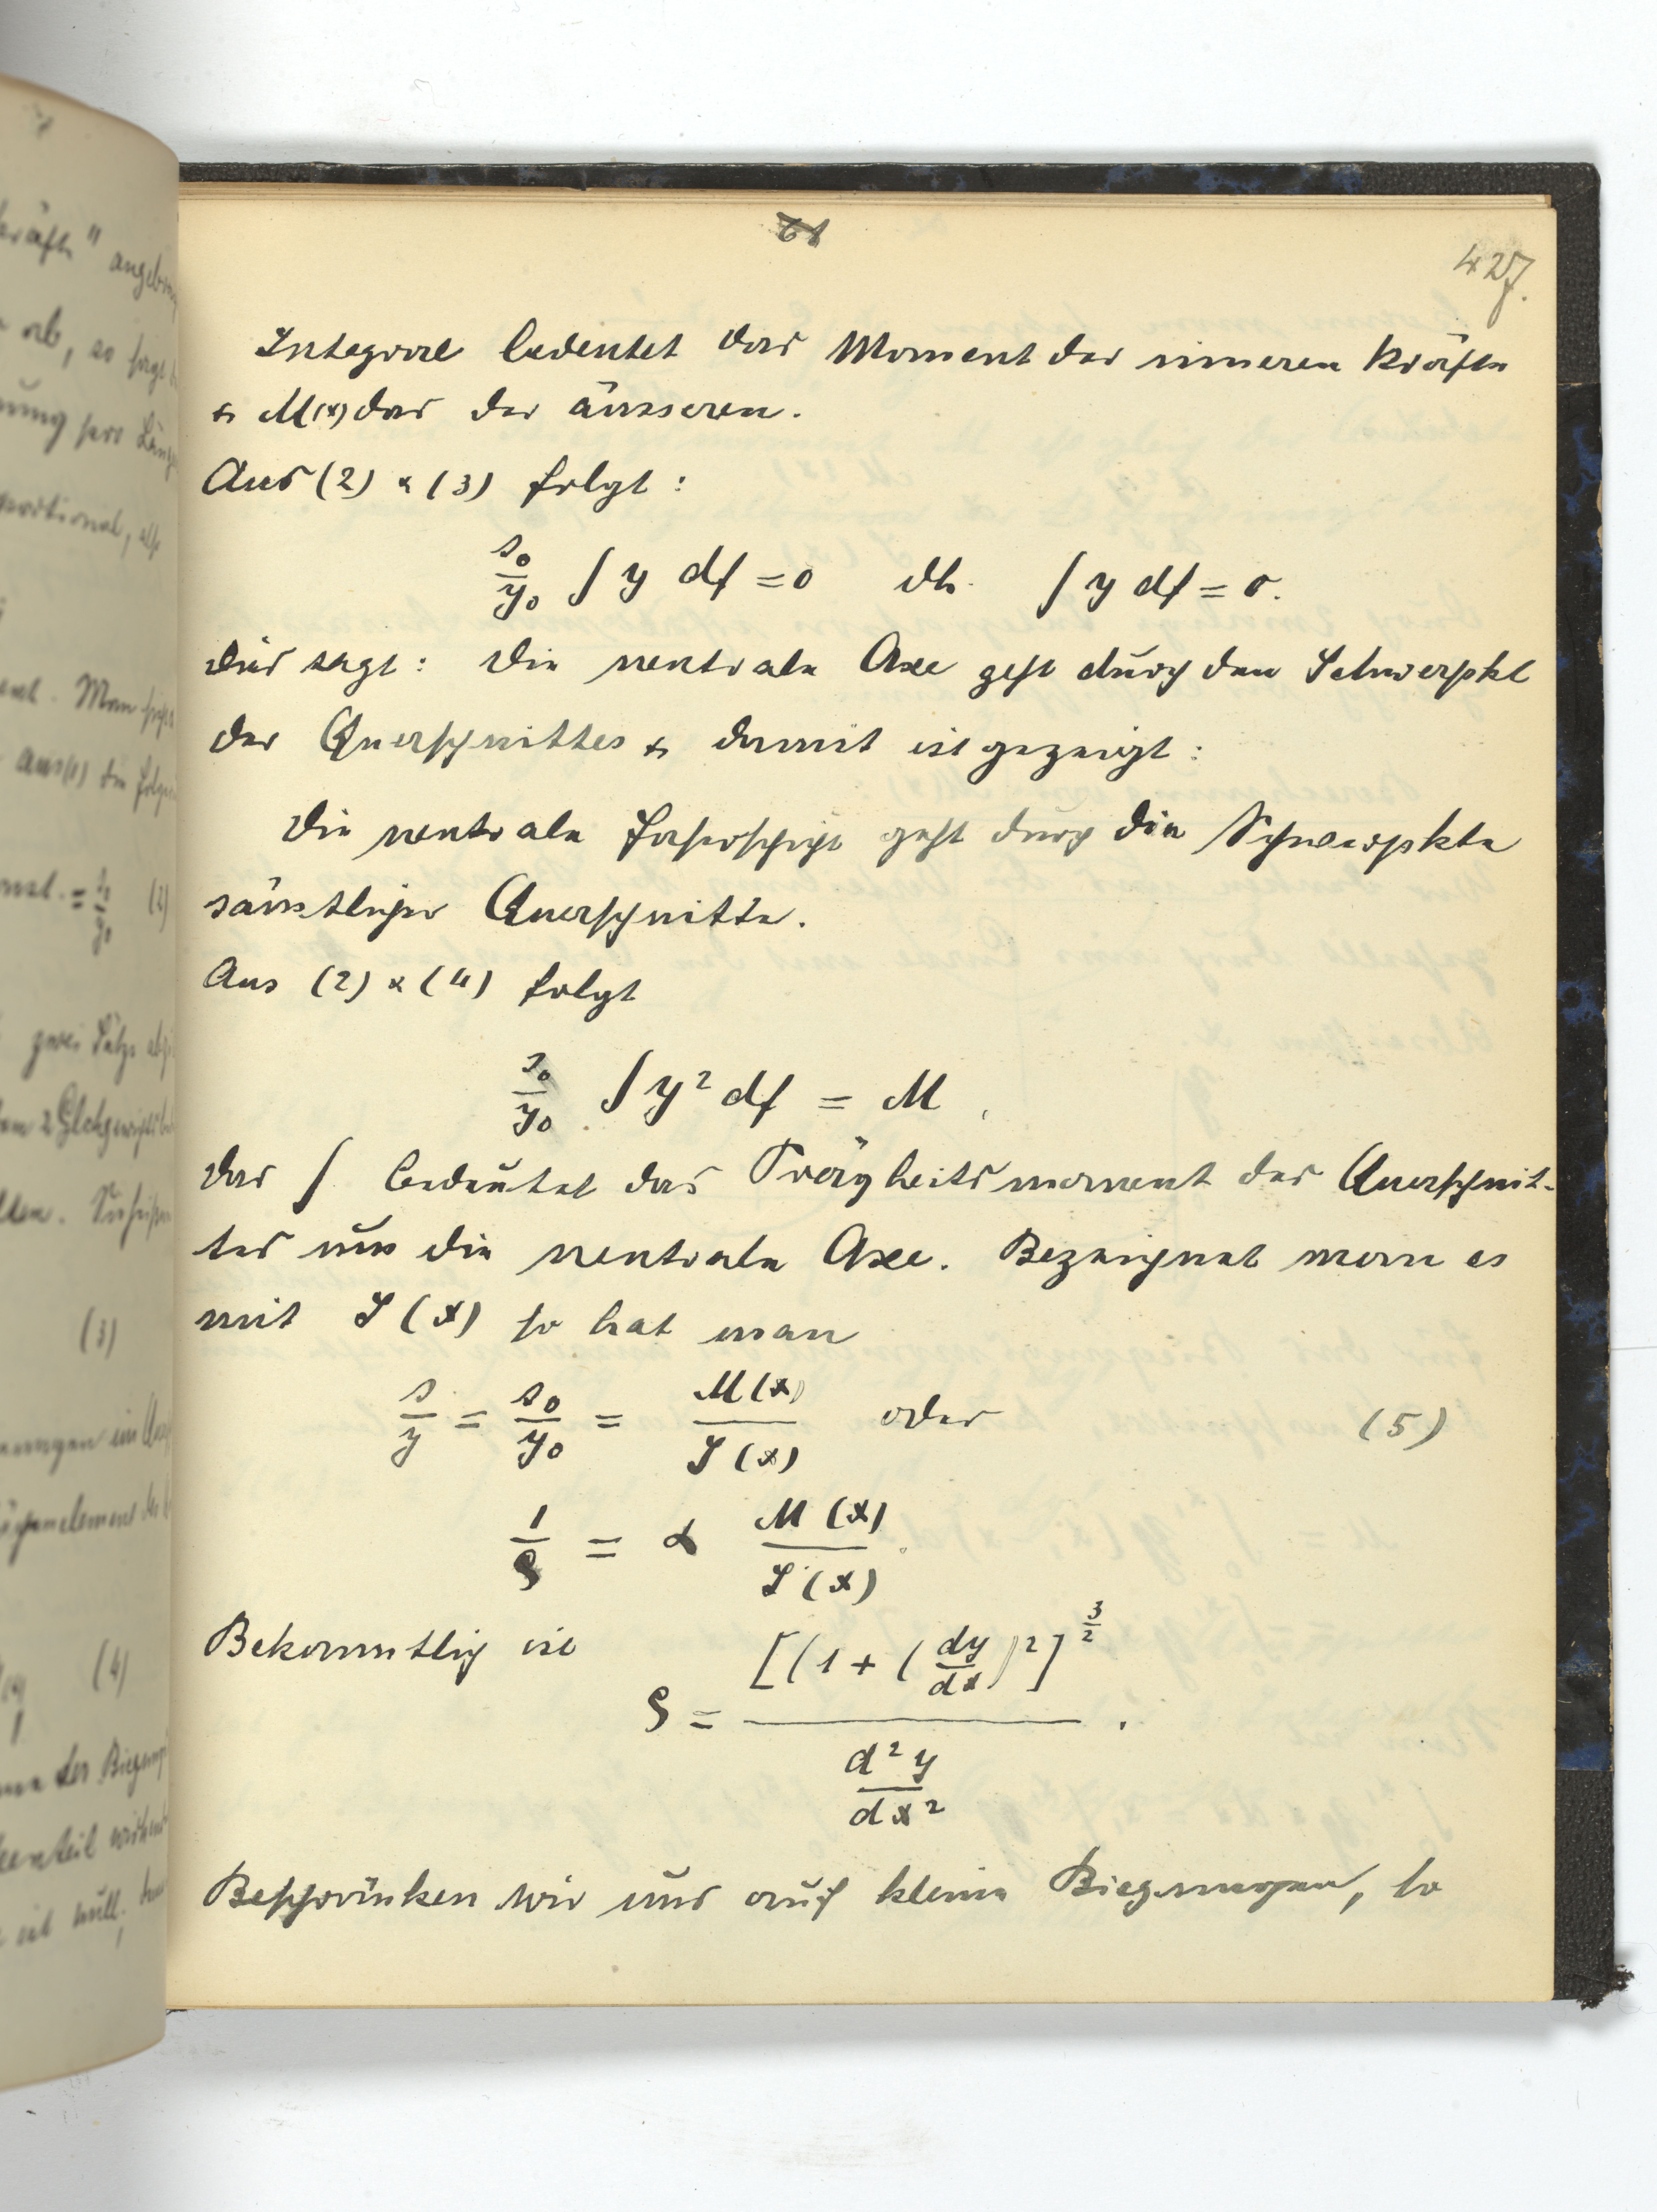 61
427.
Integral bedeutet das Moment der inneren Kräfte
& M(x) das der äusseren.
Aus (2) & (3) folgt:
s₀/y₀ ∫ y df = 0 dh. ∫ y df = 0.
Dies sagt: die neutrale Axe geht durch den Schwerpkt
des Querschnittes & damit ist gezeigt:
Die neutrale Faserschicht geht durch die Schwerpkte
sämtlicher Querschnitte.
Aus (2) & (4) folgt
s₀/y₀ ∫ y² df = M.
Das ∫ bedeutet das Trägheitsmoment des Querschnit-
tes um die neutrale Axe. Bezeichnet man es
mit J(x) so hat man
s/y = s₀/y₀ = M(x)/J(x) oder (5)
1/ρ = α M(x)/J(x).
Bekanntlich ist
ρ = [(1 + (dy/dx)²]^3/2 / d²y/dx² .
Beschränken wir uns auf kleine Biegungen, so
kräfte" angebr
ab, so folgt
pro Läng
portional, also
Man
aus (1) die folgen
const. = s₀/y₀ (2)
zwei Sätze
(3)
(4)
der Biegungs
ist null,